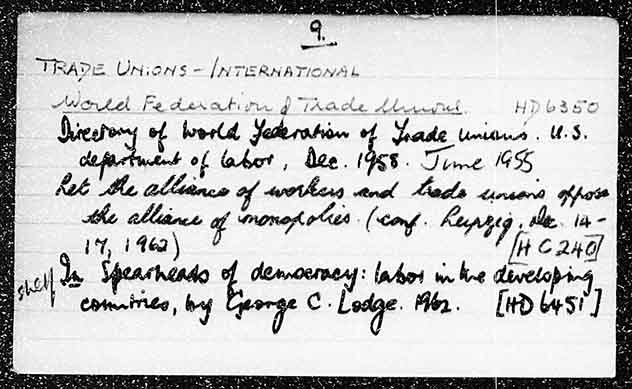 9.
TRADE UNIONS - INTERNATIONAL
World Federation of Trade Unions. HD6350
Directory of World Federation of Trade Unions. U.S.
department of labor, Dec. 1958. June 1955
Let the alliance of workers and trade unions oppose
the alliance of monopolies. (conf. Leipzig, Dec. 14-
17, 1962) [HC240]
shelf In Spearheads of democracy: labor in the developing
countries, by George C. Lodge. 1962. [HD6451]